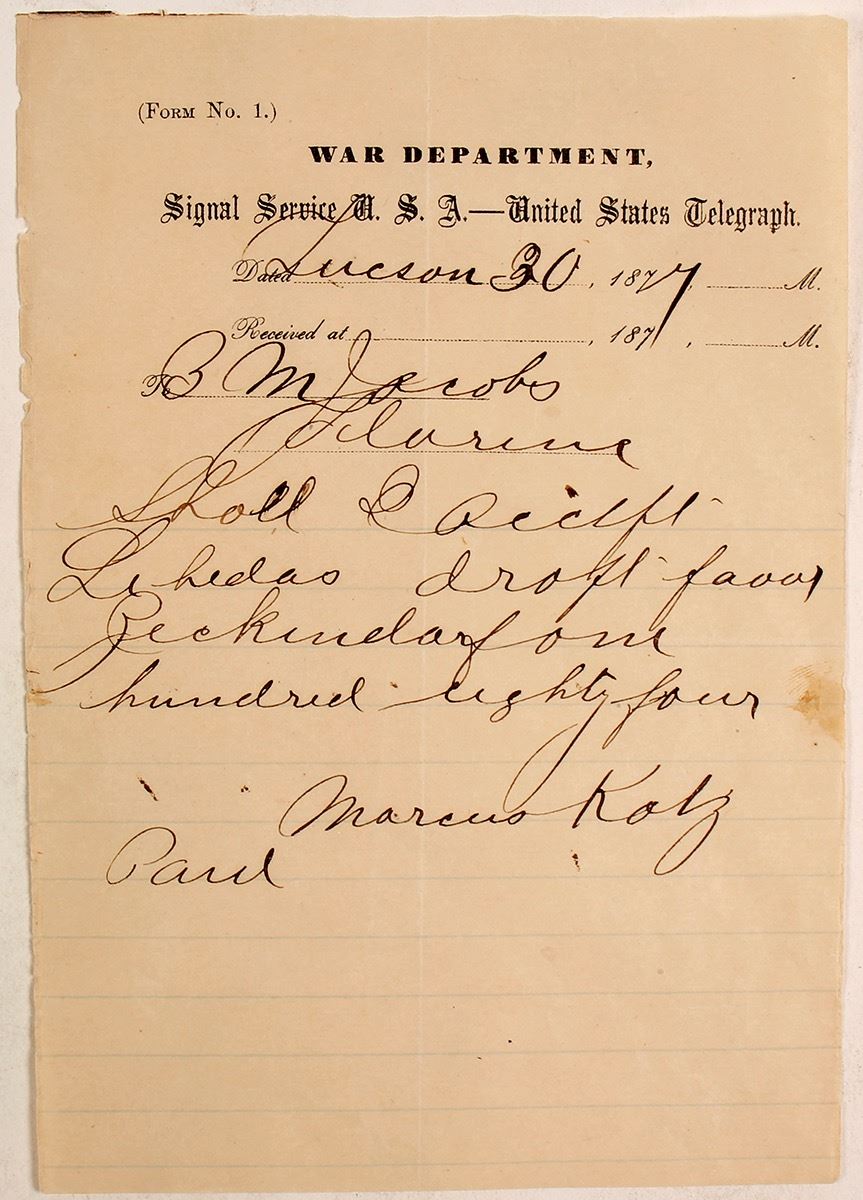 (FORM NO. 1.)
WAR DEPARTMENT,
Signal Service U. S. A.—United States Telegraph.
Dated Tucson 30, 1877, M.
Received at , 187 , M.
To B M Jacobs
Florine
Shall I
draft favor
Zeckindorf one
hundred eighty four
Marcus Katz
Paid